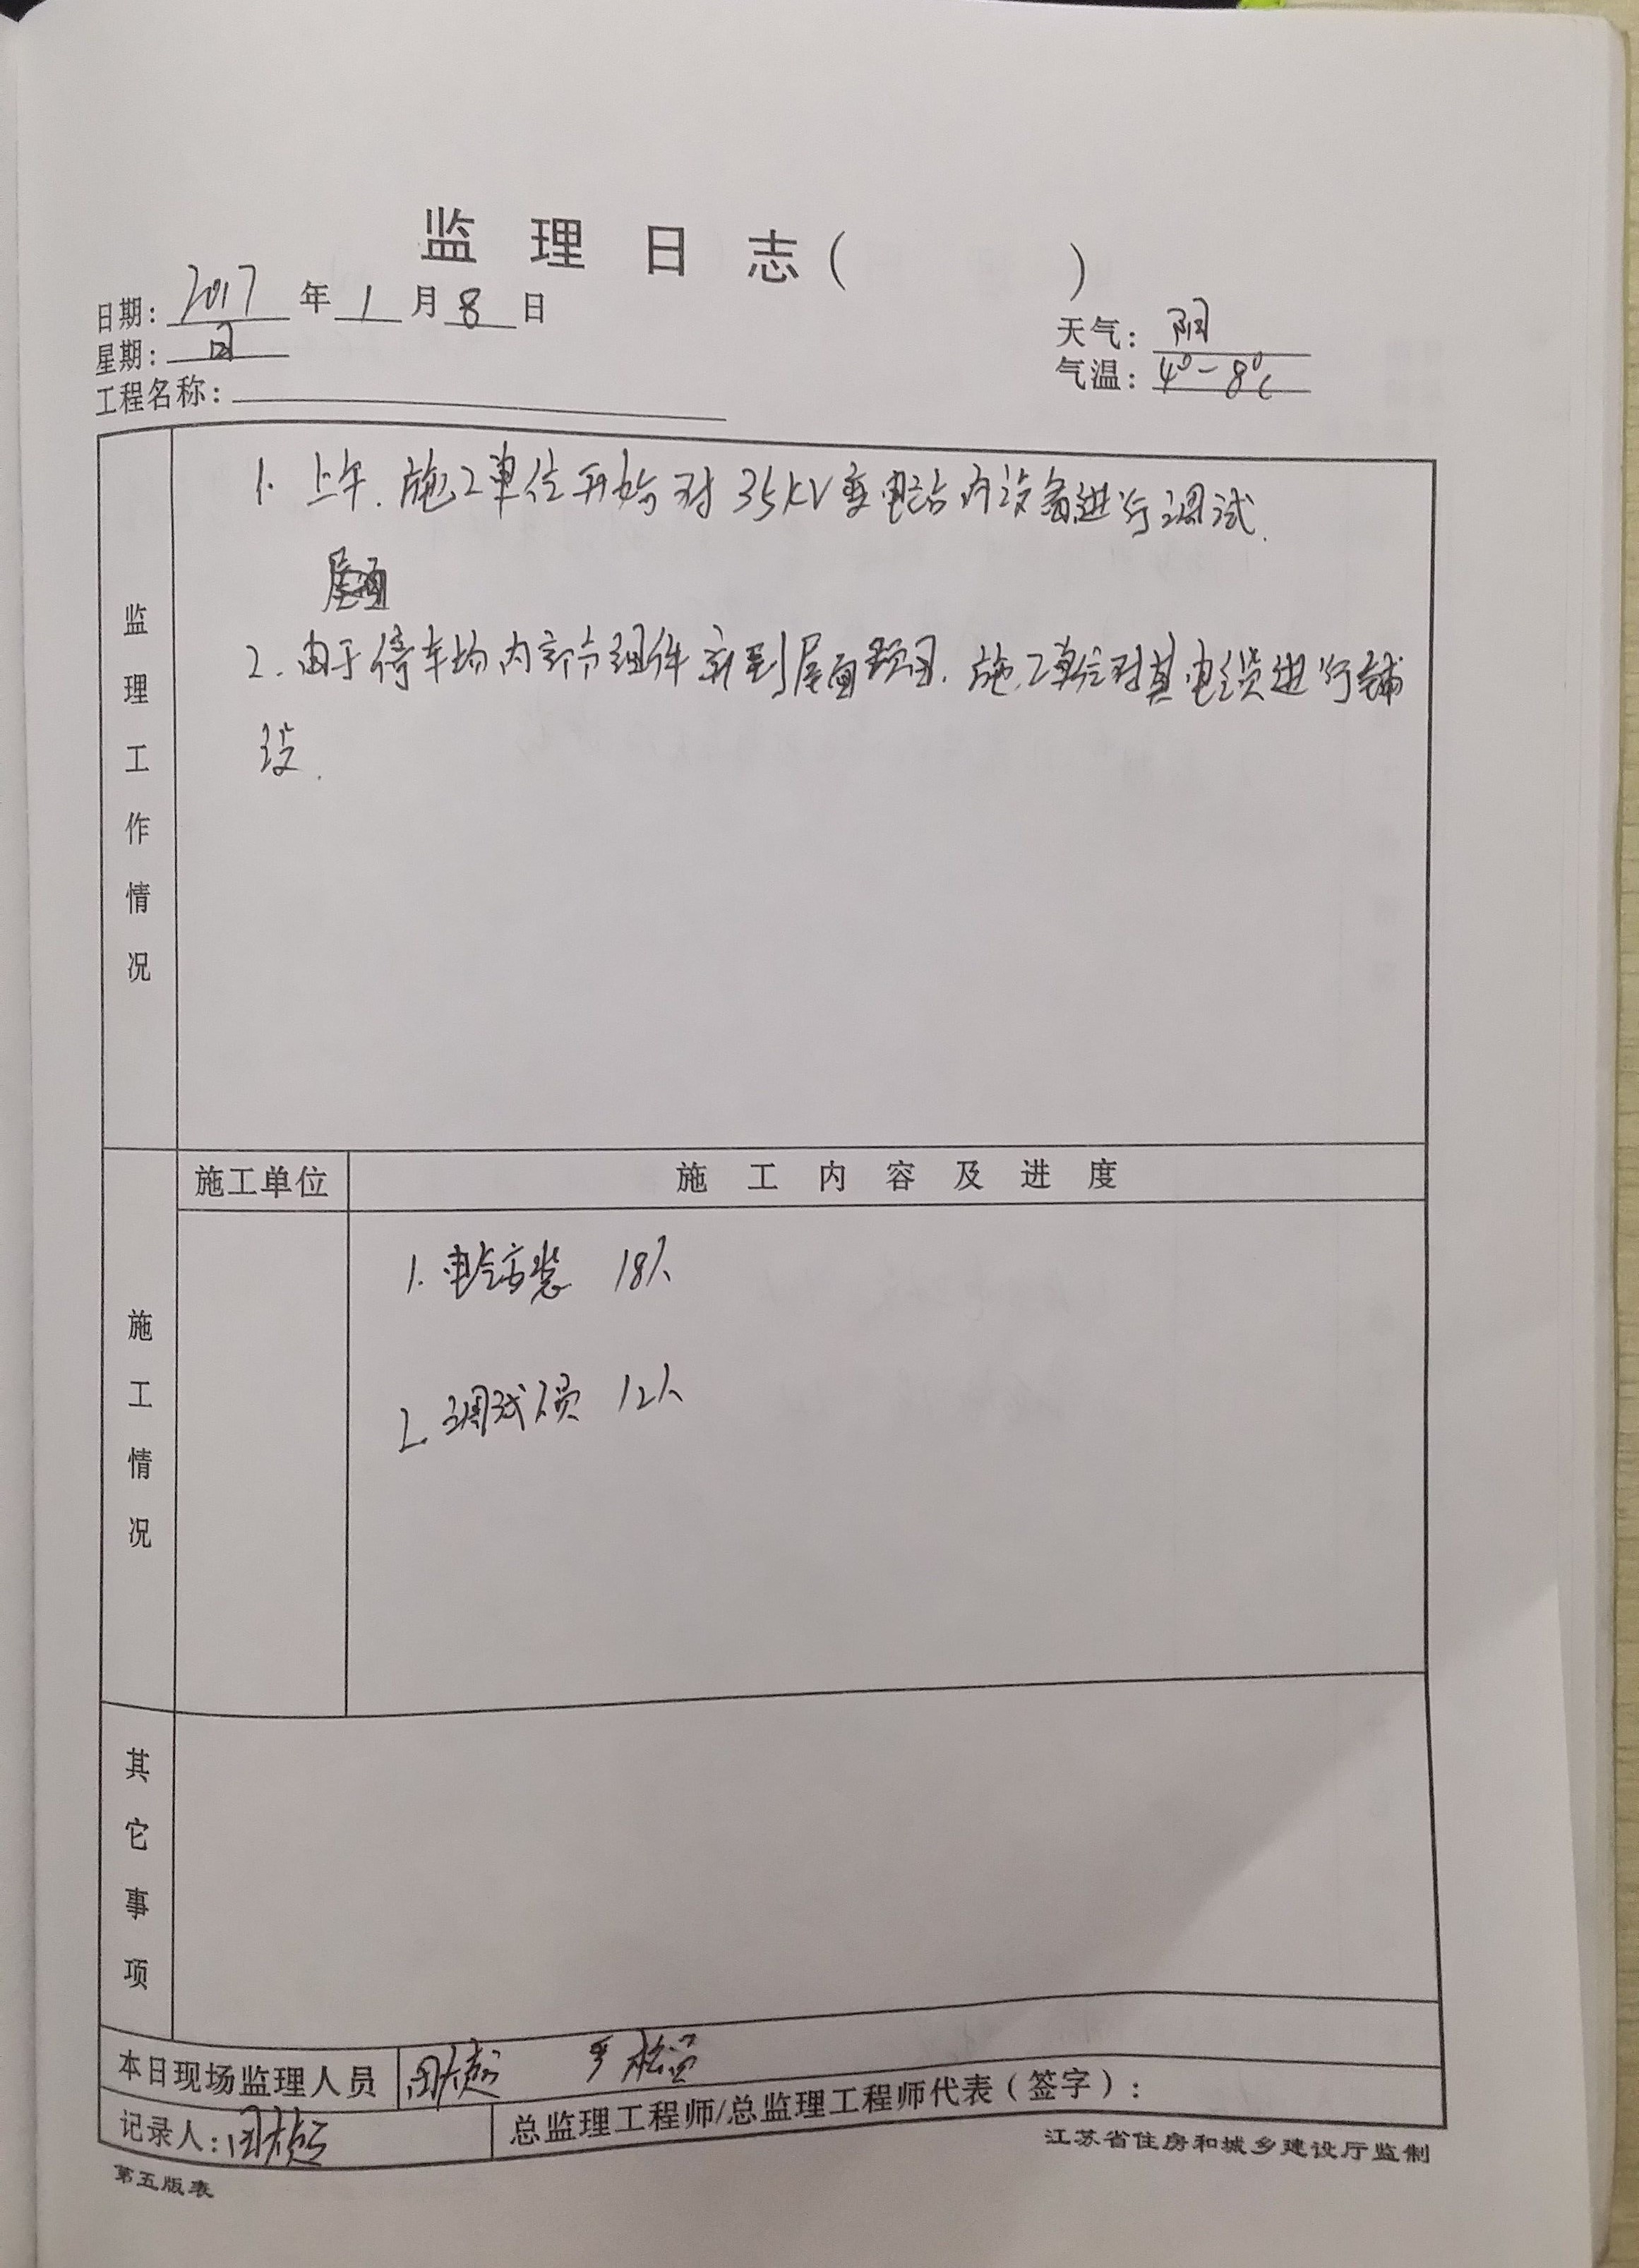 监理日志（ ）
日期：2017年1月8日
星期：日
天气：阴
气温：4°-8℃
工程名称：
监理工作情况
1. 上午.施工单位开始对35KV变电站内设备进行调试.
屋面
2. 由于停车场内部分组件新到屋面项目.施工单位对其电缆进行铺
设.
施工单位
施工内容及进度
施工情况
1. 电气安装 18人
2. 调试人员 12人
其它事项
本日现场监理人员
记录人：
总监理工程师/总监理工程师代表（签字）：
第五版表
江苏省住房和城乡建设厅监制